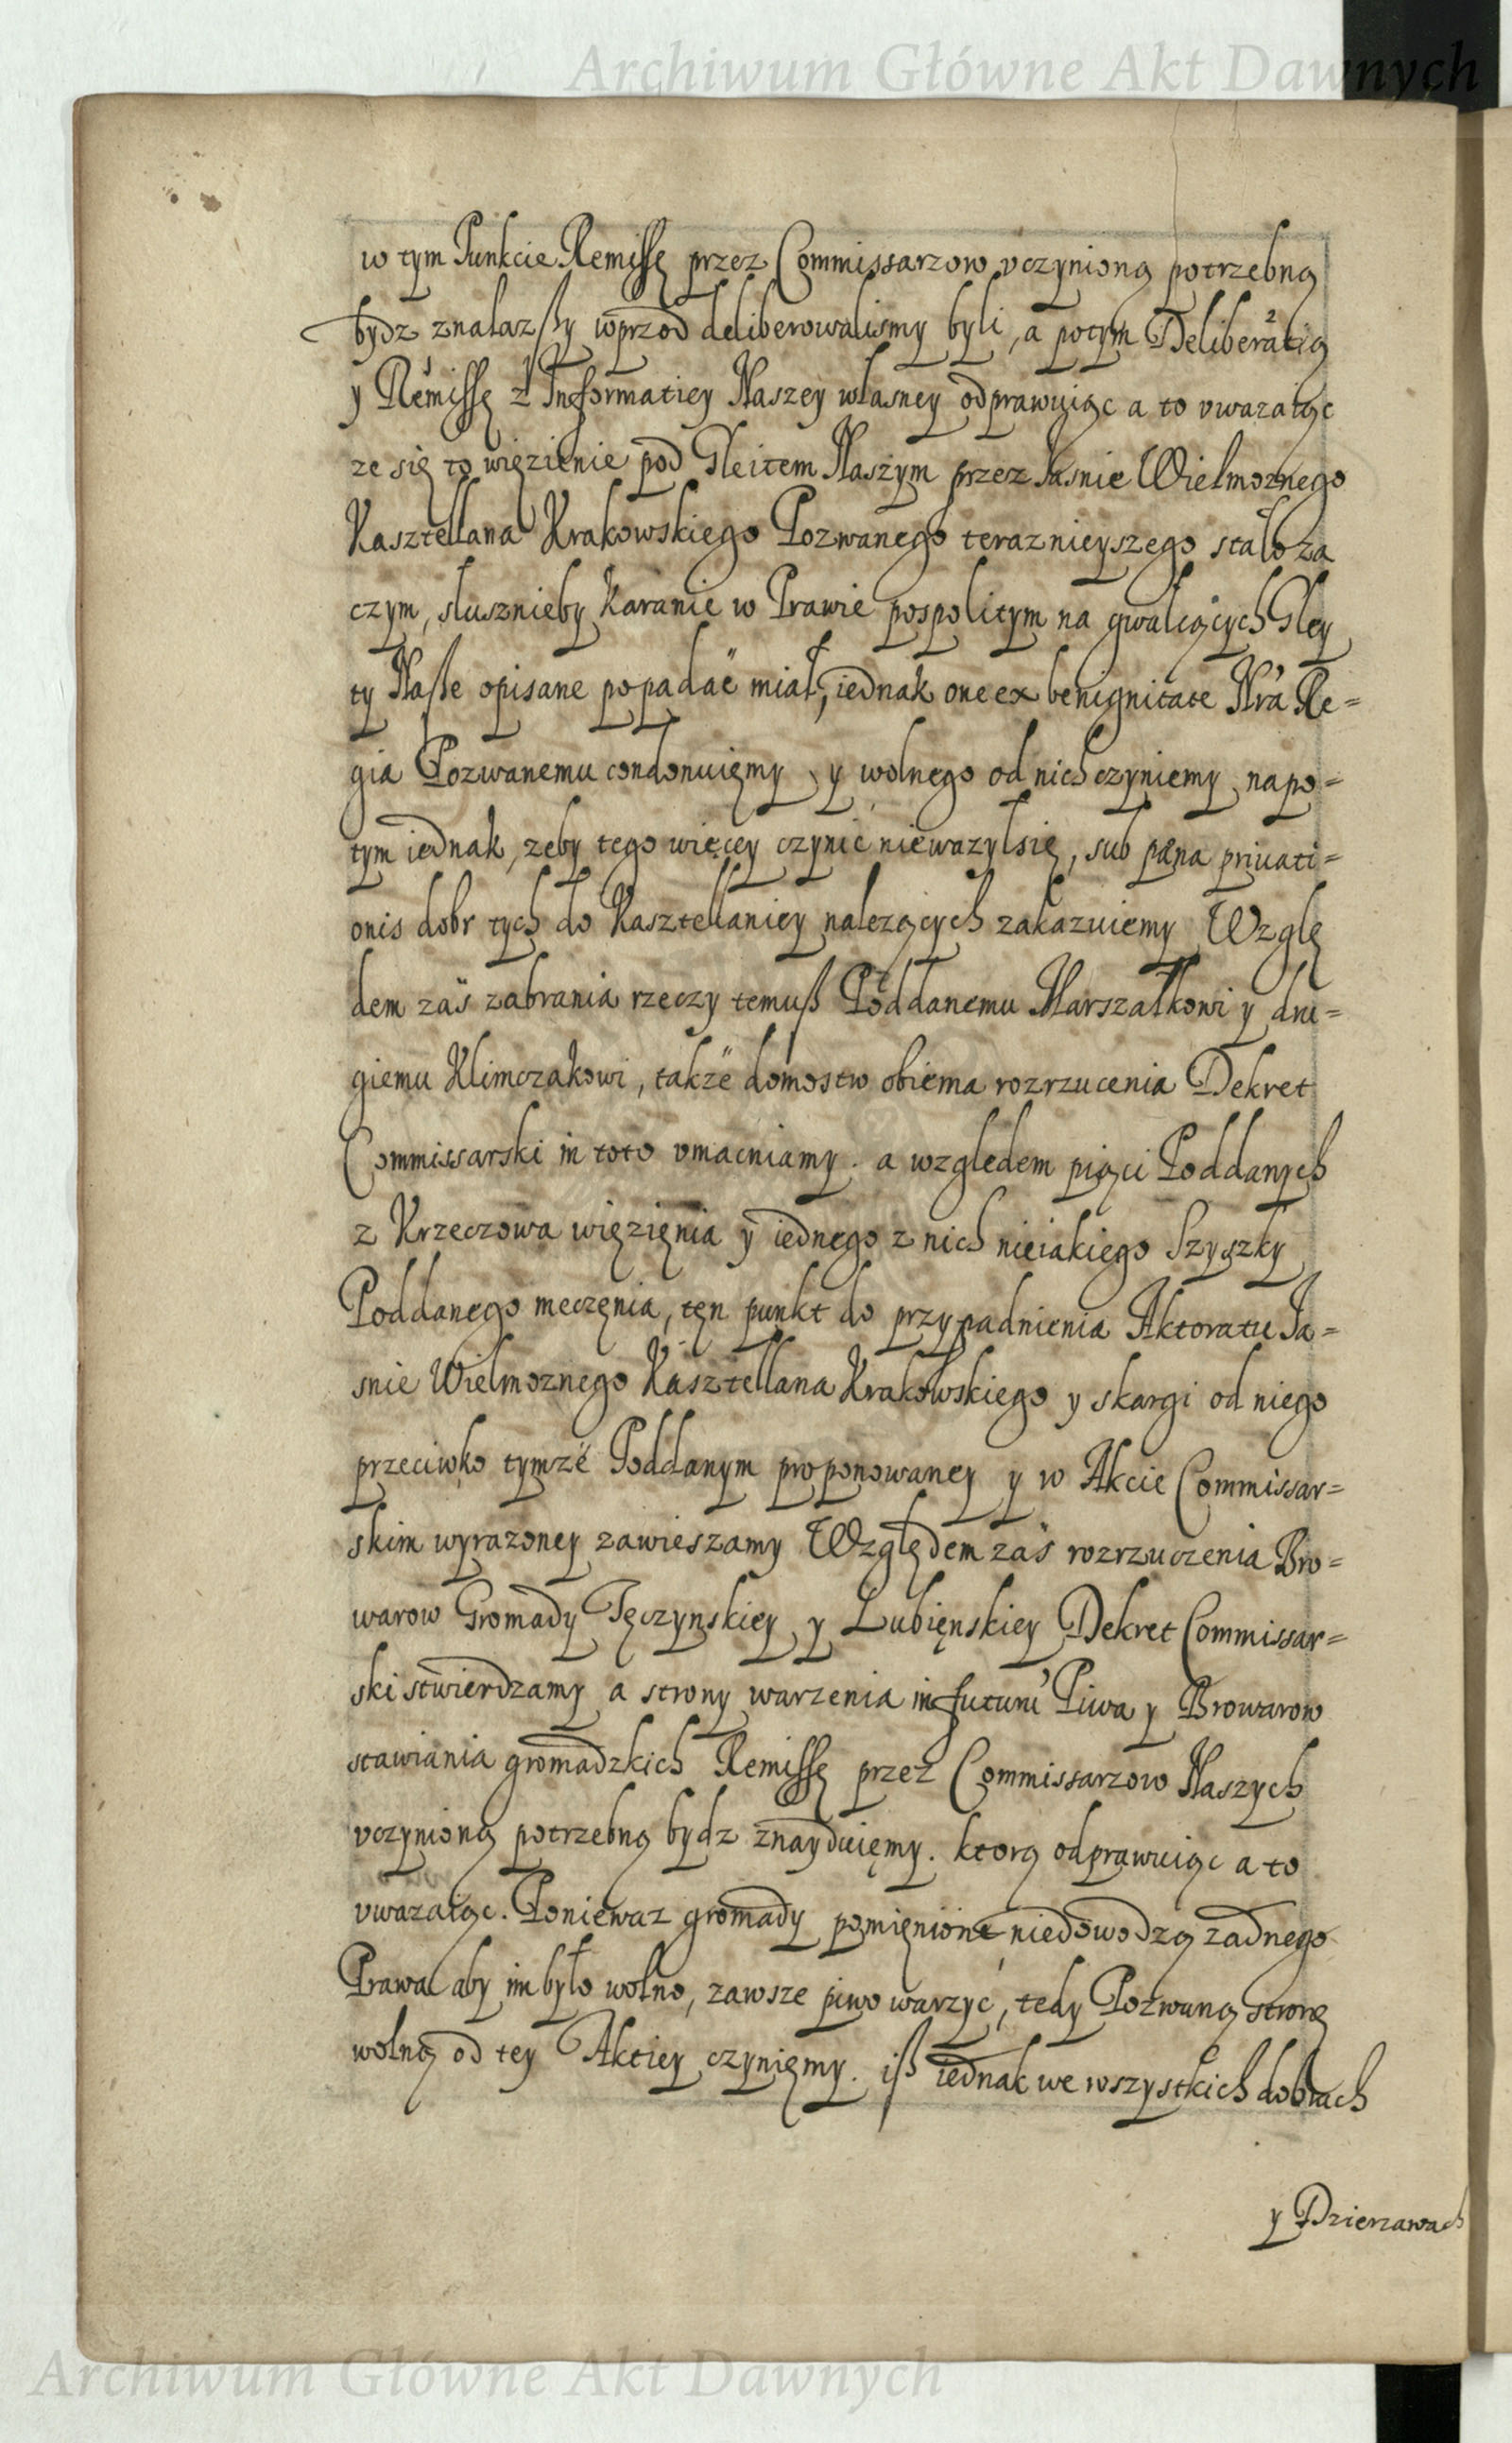 Archiwum Główne Akt Dawnych
w tym Punkcie Remissę przez Commissarzow vczynioną potrzebną
bydz znalazßy wprzod deliberowalismy byli, a potym Deliberatią
y Remissę z Informatiey Naszey własney odprawuiąc a to vwazaiąc
ze się to więzienie pod Gleitem Naszym przez Jasnie Wielmoznego
Kasztellana Krakowskiego Pozwanego teraznieyszego stało za
czym, słusznieby karanie w Prawie pospolitym na gwałcących Gley
ty Naße opisane popadać miał, iednak one ex benignitate Nra Re=
gia Pozwanemu condonuięmy, y wolnego od nich czyniemy, napo=
tym iednak, zeby tego więcey czynić niewazył się, sub pæna priuati=
onis dobr tych do Kasztellaniey nalezących zakazuiemy Wzglę
dem zaś zabrania rzeczy temuß Poddanemu Marszałkowi y dru=
giemu Klimczakowi, takze domostw obiema rozrzucenia Dekret
Commissarski in toto vmacniamy. a względem piąci Poddanych
z Krzeczowa więzięnia y iednego z nich nieiakiego Szyszky
Poddanego meczęnia, tęn punkt do przypadnienia Aktoratu Ja=
snie Wielmoznego Kasztellana Krakowskiego y skargi od niego
przeciwko tymze Poddanym proponowaney y w Akcie Commissar=
skim wyrazoney zawieszamy Względem zaś rozrzuczenia Bro=
warow Gromady Tęczynskiey y Lubięnskiey Dekret Commissar=
ski stwierdzamy a strony warzenia in futurū Piwa y Browarow
stawiania gromadzkich Remissę przez Commissarzow Naszych
vczynioną potrzebną bydz znayduięmy. ktorą odprawuiąc a to
vwazaiąc. Poniewaz gromady pomięnione niedowodzą zadnego
Prawa aby im było wolno, zawsze piwo warzyć, tedy Pozwaną stronę
wolną od tey Aktiey czynięmy. iß iednak we wszystkich dobrach
y Dzierzawach
Archiwum Główne Akt Dawnych